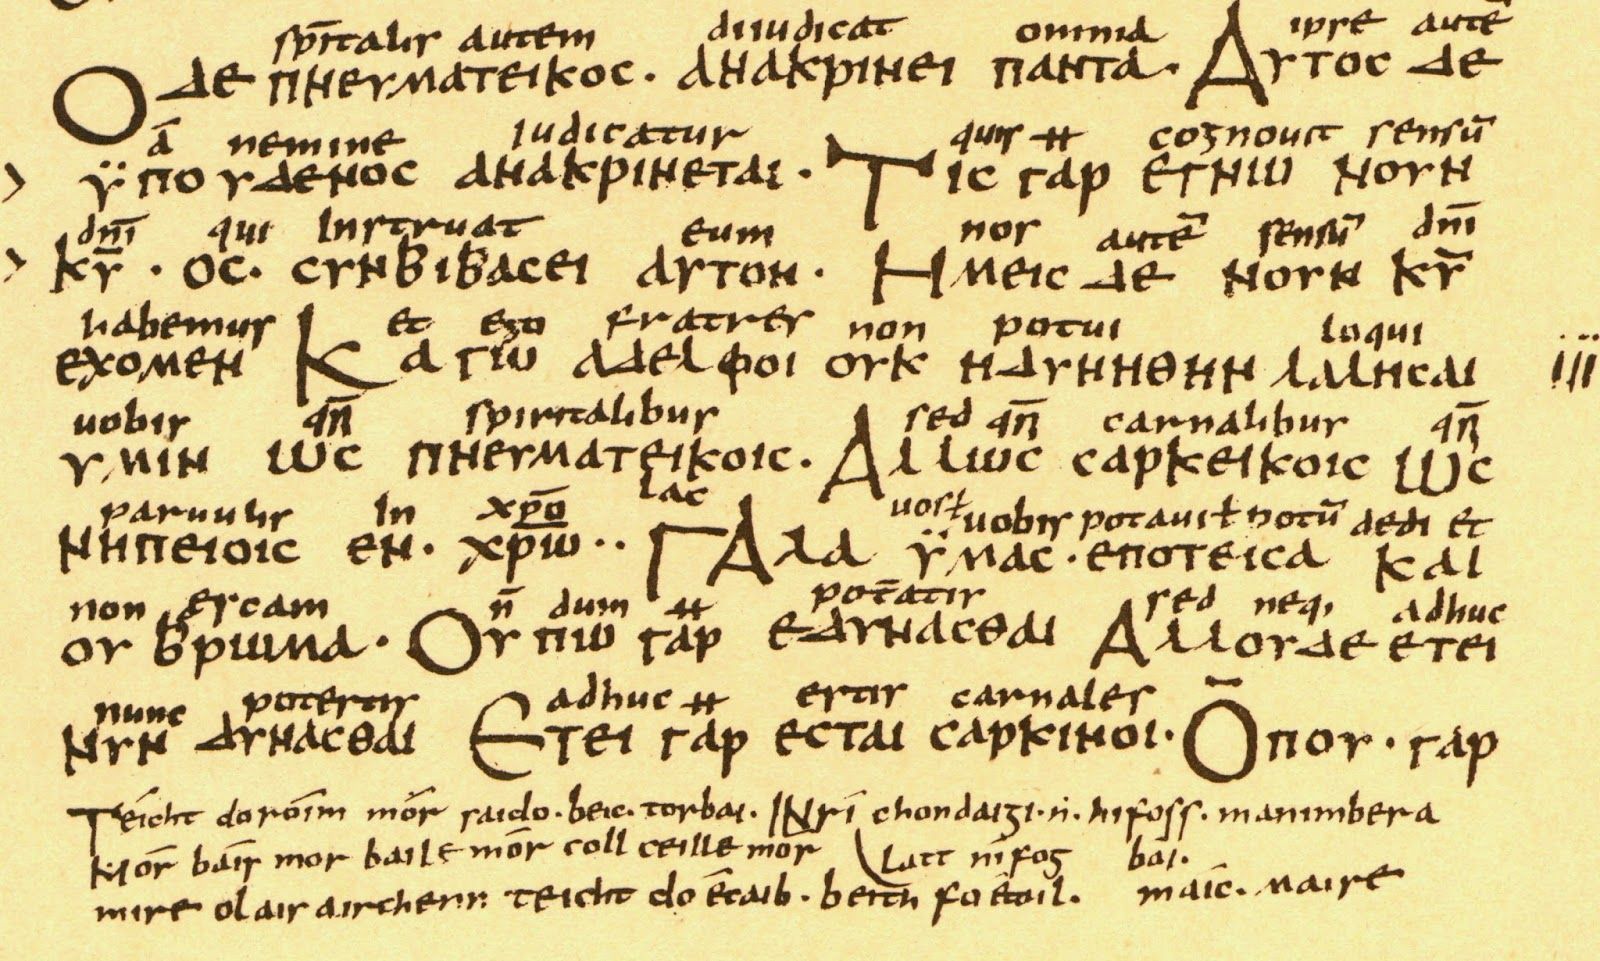 spi̅talis autem diiudicat omnia ipse aute̅
Ο ΔΕ ΠΝΕΥΜΑΤΕΙΚΟС· ΑΝΑΚΡΙΝΕΙ ΠΑΝΤΑ· ΑΥΤΟС ΔΕ
a̅ nemine iudicatur quis ++ cognouit sensu̅
ΫΠΟΥΔΕΝΟС ΑΝΑΚΡΙΝΕΤΑΙ· ΤΙС ΓΑΡ ΕΓΝШ ΝΟΥΝ
dni̅ qui instruat eum nos aute̅ sensu̅ dni̅
ΚΥ̅· ΟС· СΥΝΒΙΒΑСΕΙ ΑΥΤΟΝ· ΗΜΕΙС ΔΕ ΝΟΥΝ ΚΥ̅
habemus et ego fratres non potui loqui
ΕΧΟΜΕΝ ΚΑΓШ ΑΔΕΛΦΟΙ ΟΥΚ ΗΔΥΝΗΘΗΝ ΛΑΛΗСΑΙ III
uobis qn̅ spiritalibus sed qn̅ carnalibus qn̅
ΥΜΙΝ ШС ΠΝΕΥΜΑΤΕΙΚΟΙС· ΑΛΛШС САРΚΕΙΚΟΙС ШС
paruulis in xpo̅ lac uos ł uobis potaui ł potu̅ dedi et
ΝΗΠΕΙΟΙС ΕΝ· ΧΡШ̅·· ΓΑΛΑ ΫΜΑС· ΕΠΟΤΕΙСΑ ΚΑΙ
non escam n̅ dum ++ pot̅atis sed neq; adhuc
ΟΥ ΒΡШΜΑ· ΟΥΠШ ΓΑΡ ΕΔΥΝΑСΘΑΙ ΑΛΛΟΥΔΕ ΕΤΕΙ
nunc potestis adhuc ++ estis carnales
ΝΥΝ ΔΥΝΑСΘΑΙ ΕΤΕΙ ΓΑΡ ΕСΤΑΙ СΑΡΚΙΝΟΙ· ΟΠΟΥ· ΓΑΡ
Téicht doróim mór saido· beic· torbai· INrí chondaigi· ṅ· hifoss· manimbera
Mór báis mor baile mór coll ceille mór latt nífog bai·
mire olais airchenn teicht do écaib· beith fo étoil· maic· maire